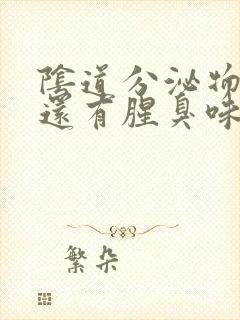 陰道分泌物
還有腥臭味
繁朵